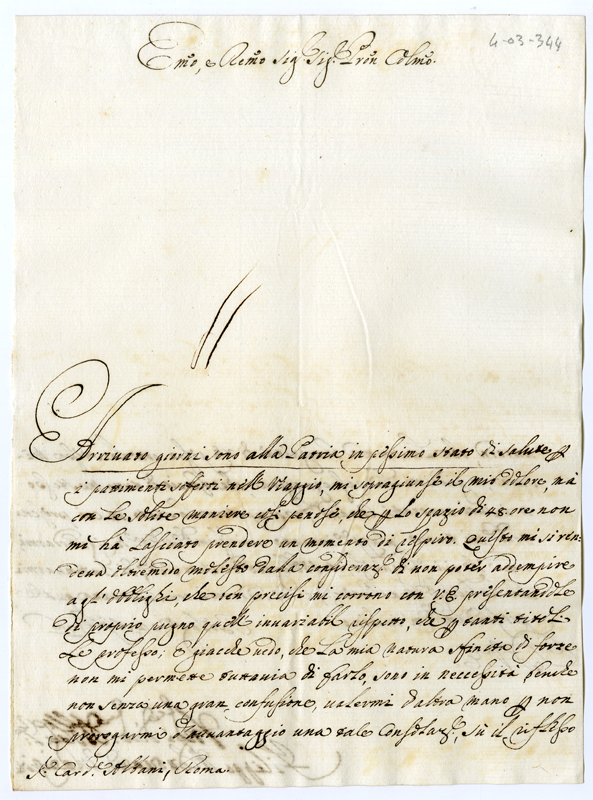 4-03-344
Emo, e Remo Sig.r Sig.r Pron Colmo.
Arrivato giorni sono alla Patria in pessimo stato di salute p
i patimenti sofferti nel Viaggio, mi sopragiunse il mio dolore, mà
con le solite maniere così penose, che p lo spazio di 48 ore non
mi hà lasciato prendere un momento di respiro. Questo mi si ren-
deva oltremodo molesto dalla consideraz.e di non poter adempire
agl'obblighi, che ben precisi mi corrono con V.E. presentandole
di proprio pugno quell invariabil rispetto, che p tanti titoli
Le professo; e giacche vedo, che La mia natura sfinita di forze
non mi permette tuttavia di farlo, sono in neccessità benche
non senza una gran confusione, valermi d'altra mano p non
prorogarmi d'avvantaggio una tale Consolaz.e, sù il riflesso
S.r Card.e Albani, Roma.